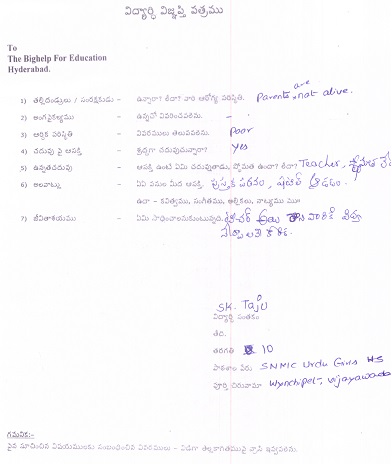 విద్యార్ధి విజ్ఞప్తి పత్రము
To
The Bighelp For Education
Hyderabad.
1) తల్లిదండ్రులు / సంరక్షకుడు - ఉన్నారా? లేదా? వారి ఆరోగ్య పరిస్థితి. Parents are not alive.
2) అంగవైకల్యము - ఉన్నచో వివరించవలెను. -
3) ఆర్థిక పరిస్థితి - వివరములు తెలుపవలెను. Poor
4) చదువు పై ఆసక్తి - శ్రద్ధగా చదువుచున్నారా? yes
5) ఉన్నతచదువు - ఆసక్తి ఉంటే ఏమి చదువుతాడు, స్తోమత ఉందా? లేదా? Teacher, స్తోమత లే
6) అలవాట్లు - ఏఏ పనుల మీద ఆసక్తి. పుస్తక పఠనం, షటిల్ ఆడడం.
ఉదా - కవిత్వము, సంగీతము, అల్లికలు, నాట్యము మ॥
7) జీవితాశయము - ఏమి సాధించాలనుకుంటున్నది. టీచర్ అయి
SK. Taju
విద్యార్థి సంతకం
తేది.
తరగతి 10
పాఠశాల పేరు SNMC Urdu Girls HS
పూర్తి చిరునామా Wynchipet, Vijayawada
గమనిక:-
పైన సూచించిన విషయములకు సంబంధించిన వివరములు - విడిగా తెల్లకాగితముపై వ్రాసి ఇవ్వవలెను.